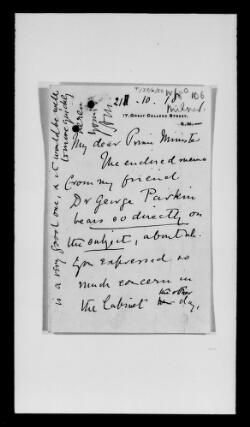 106
21.10.18
17, GREAT COLLEGE STREET,
S.W.
My dear Prime Minister
The enclosed memo
from my friend
Dr George Parkin
bears so directly on
the subject, about wh:
you expressed so
much concern in
the Cabinet the other
day,
is a very good one, & it would be well
to move quickly